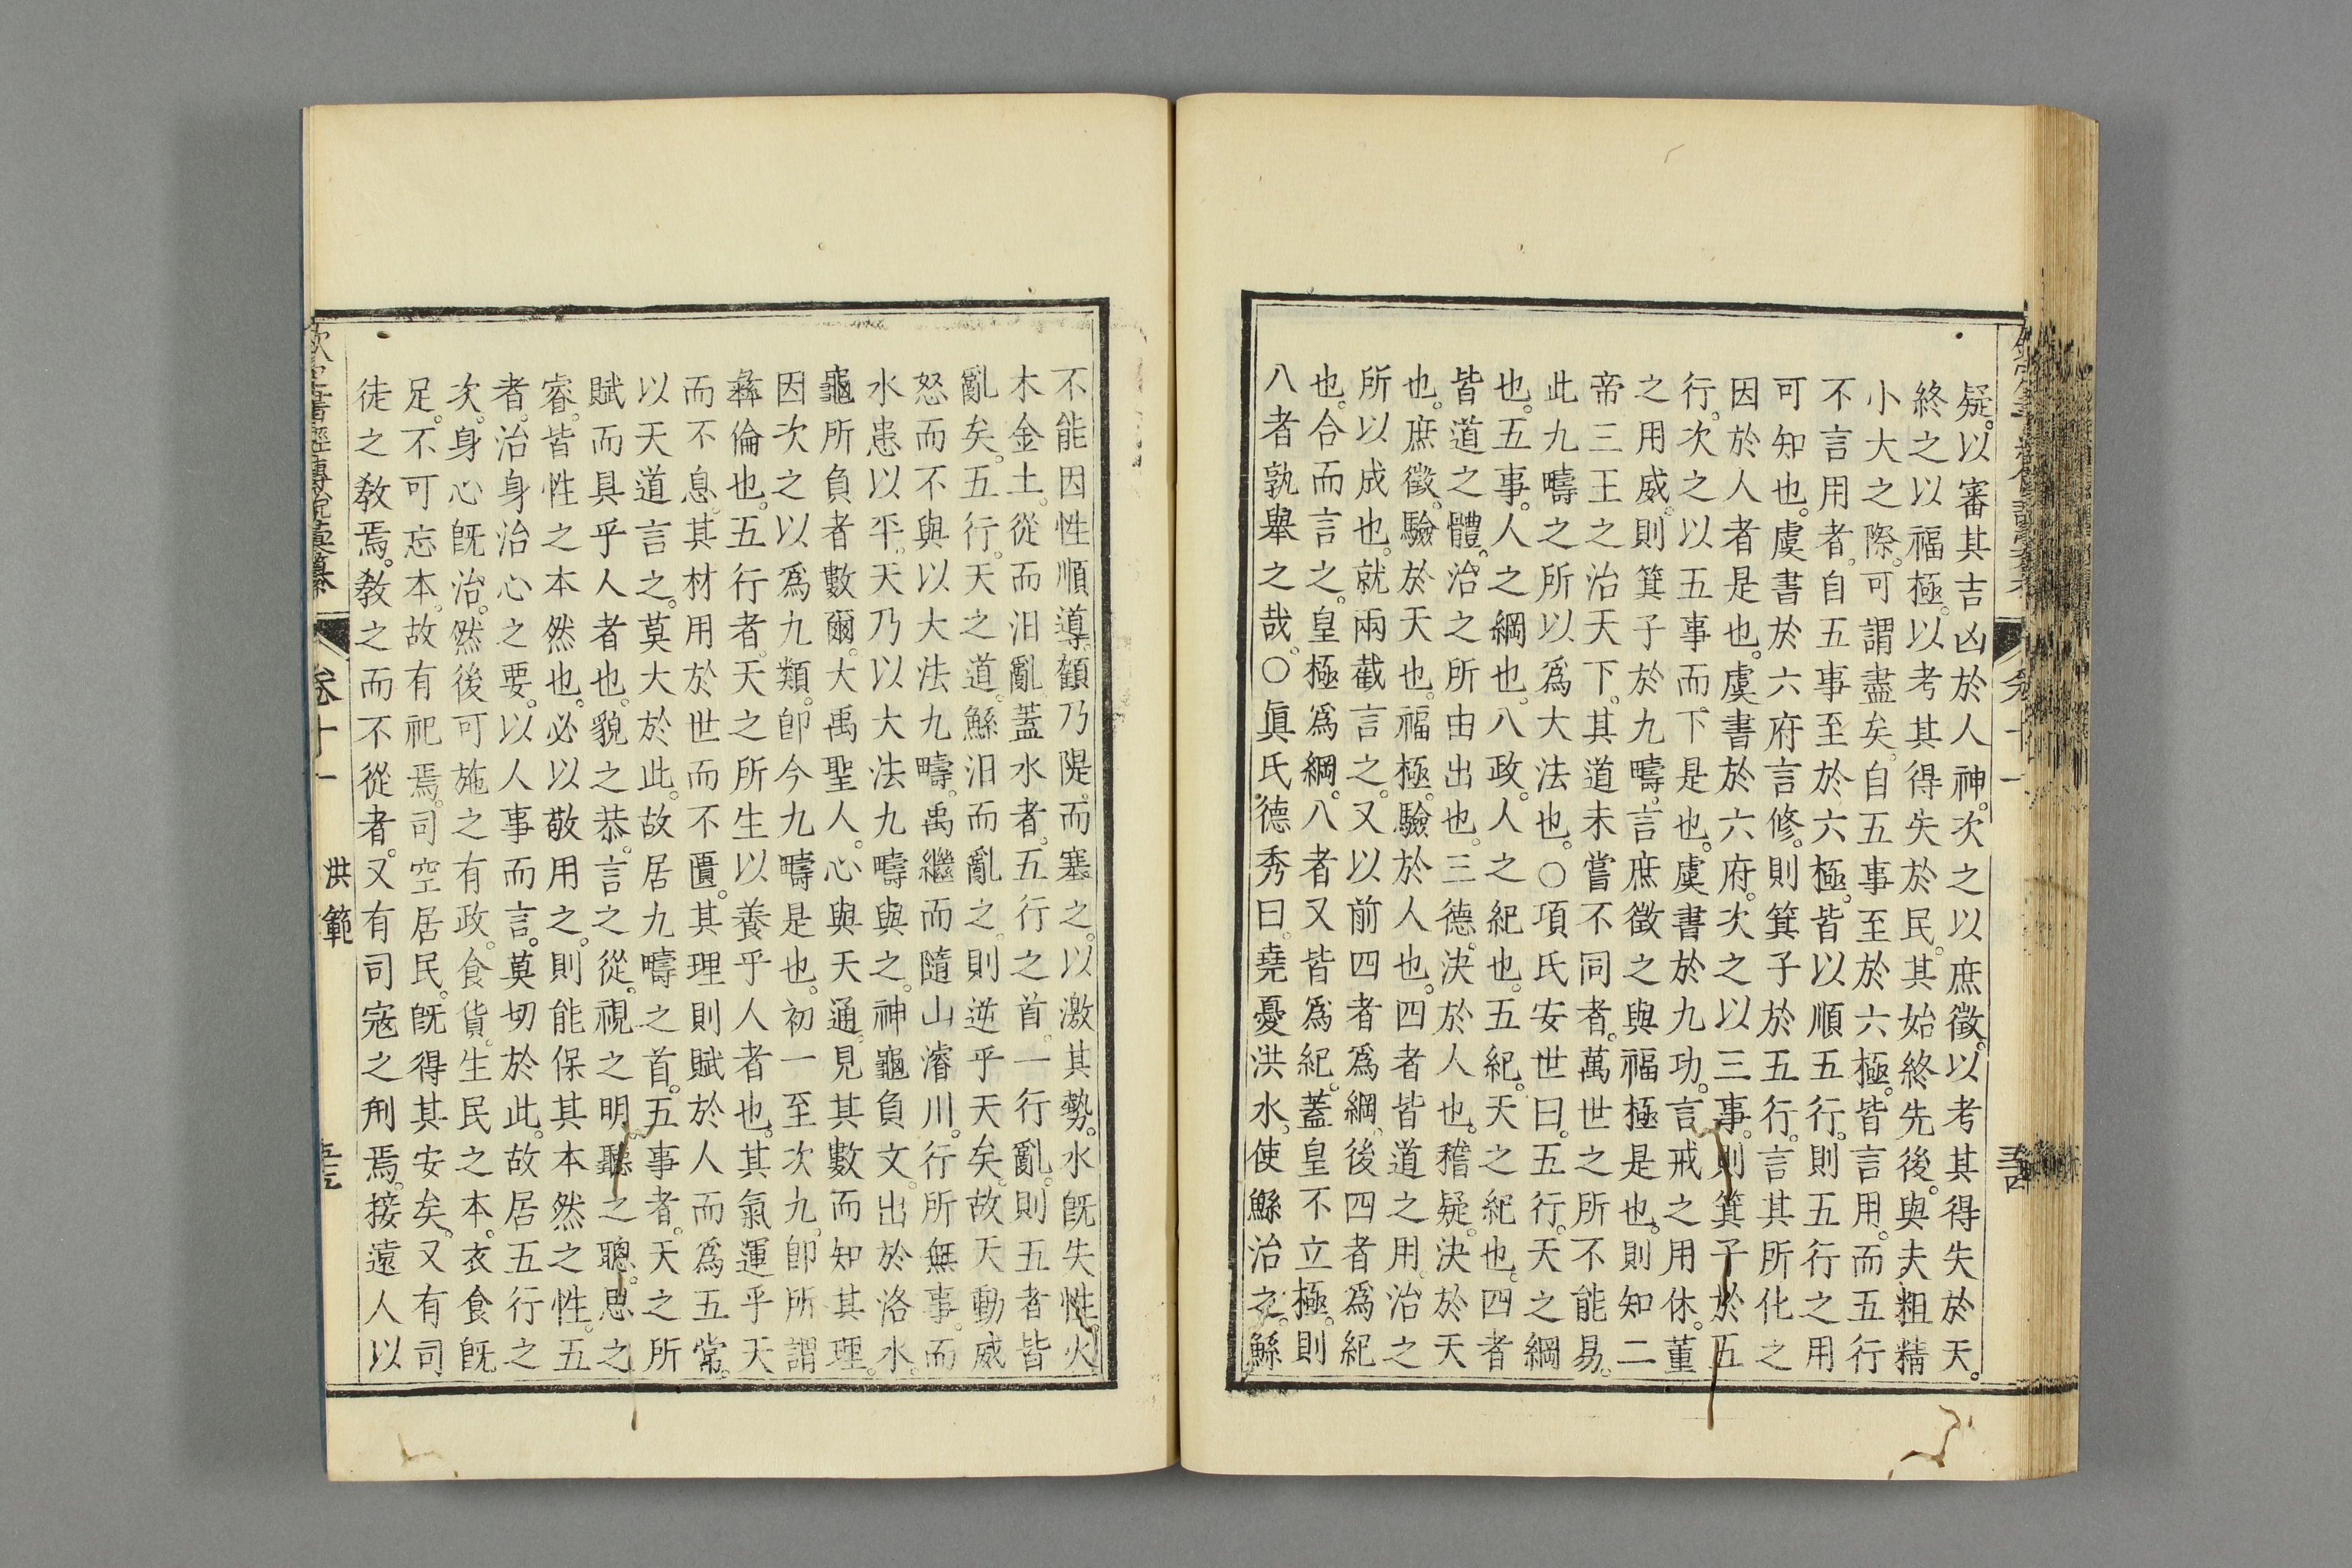 疑。以審其吉凶於人神。次之以庶徵。以考其得失於天。
終之以福極。以考其得失於民。其始終先後。與夫粗精
小大之際。可謂盡矣。自五事至於六極。皆言用。而五行
不言用者。自五事至於六極。皆以順五行。則五行之用
可知也。虞書於六府言修。則箕子於五行。言其所化之
因於人者是也。虞書於六府。次之以三事。則箕子於五
行。次之以五事而下是也。虞書於九功。言戒之用休。董
之用威。則箕子於九疇。言庶徵之與福極是也。則知二
帝三王之治天下。其道未嘗不同者。萬世之所不能易。
此九疇之所以爲大法也。○項氏安世曰。五行。天之綱
也。五事。人之綱也。八政。人之紀也。五紀。天之紀也。四者
皆道之體。治之所由出也。三德。決於人也。稽疑。決於天
也。庶徵。驗於天也。福極。驗於人也。四者皆道之用。治之
所以成也。就兩截言之。又以前四者爲綱。後四者爲紀
也。合而言之。皇極爲綱。八者又皆爲紀。蓋皇不立極。則
八者孰舉之哉。○眞氏德秀曰。堯憂洪水。使鯀治之。鯀
不能因性順導。顧乃隄而塞之。以激其勢。水旣失性。火
木金土。從而汨亂。蓋水者。五行之首。一行亂。則五者皆
亂矣。五行。天之道。鯀汨而亂之。則逆乎天矣。故天動威
怒而不與以大法九疇。禹繼而隨山濬川。行所無事。而
水患以平。天乃以大法九疇與之。神龜負文。出於洛水。
龜所負者數爾。大禹聖人。心與天通。見其數而知其理。
因次之以爲九類。卽今九疇是也。初一至次九。卽所謂
彝倫也。五行者。天之所生以養乎人者也。其氣運乎天
而不息。其材用於世而不匱。其理則賦於人而爲五常。
以天道言之。莫大於此。故居九疇之首。五事者。天之所
賦而具乎人者也。貌之恭。言之從。視之明。聽之聰。思之
睿。皆性之本然也。必以敬用之。則能保其本然之性。五
者。治身治心之要。以人事而言。莫切於此。故居五行之
次。身心旣治。然後可施之有政。食貨。生民之本。衣食旣
足。不可忘本。故有祀焉。司空居民。旣得其安矣。又有司
徒之敎焉。敎之而不從者。又有司寇之刑焉。接遠人以
卷十一
洪範